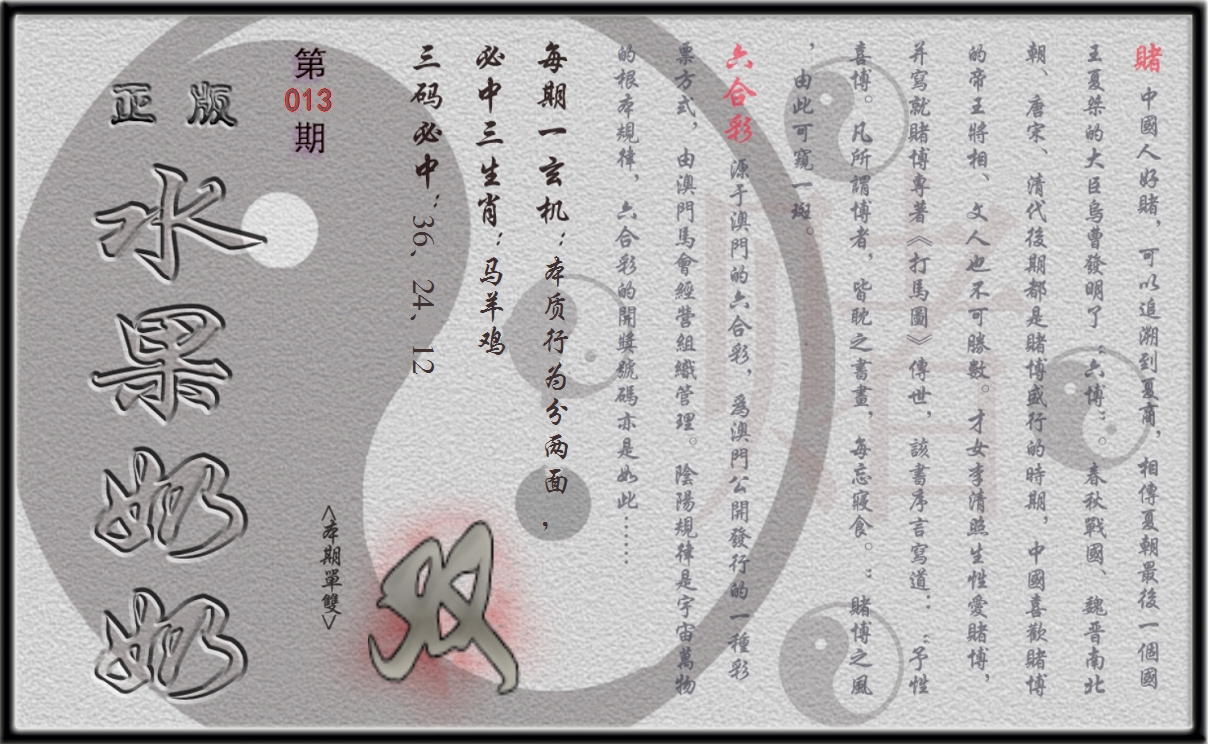 賭 中國人好賭，可以追溯到夏商，相傳夏朝最後一個國
王夏桀的大臣烏曹發明了“六博”。春秋戰國、魏晉南北
朝、唐宋、清代後期都是賭博盛行的時期，中國喜歡賭博
的帝王將相、文人也不可勝數。才女李清照生性愛賭博，
并寫就賭博專著《打馬圖》傳世，該書序言寫道：“予性
喜博。凡所謂博者，皆耽之晝，每忘寢食。：賭博之風
，由此可窺一斑。
六合彩 源于澳門的六合彩，爲澳門公開發行的一種彩
票方式，由澳門馬會經營組織管理。陰陽規律是宇宙萬物
的根本規律，六合彩的開獎號碼亦是如此……
每期一玄机：本质行为分两面，
必中三生肖：马羊鸡
三码必中：36、24、12
双
<本期單雙>
第
013
期
正版
水果奶奶
赌